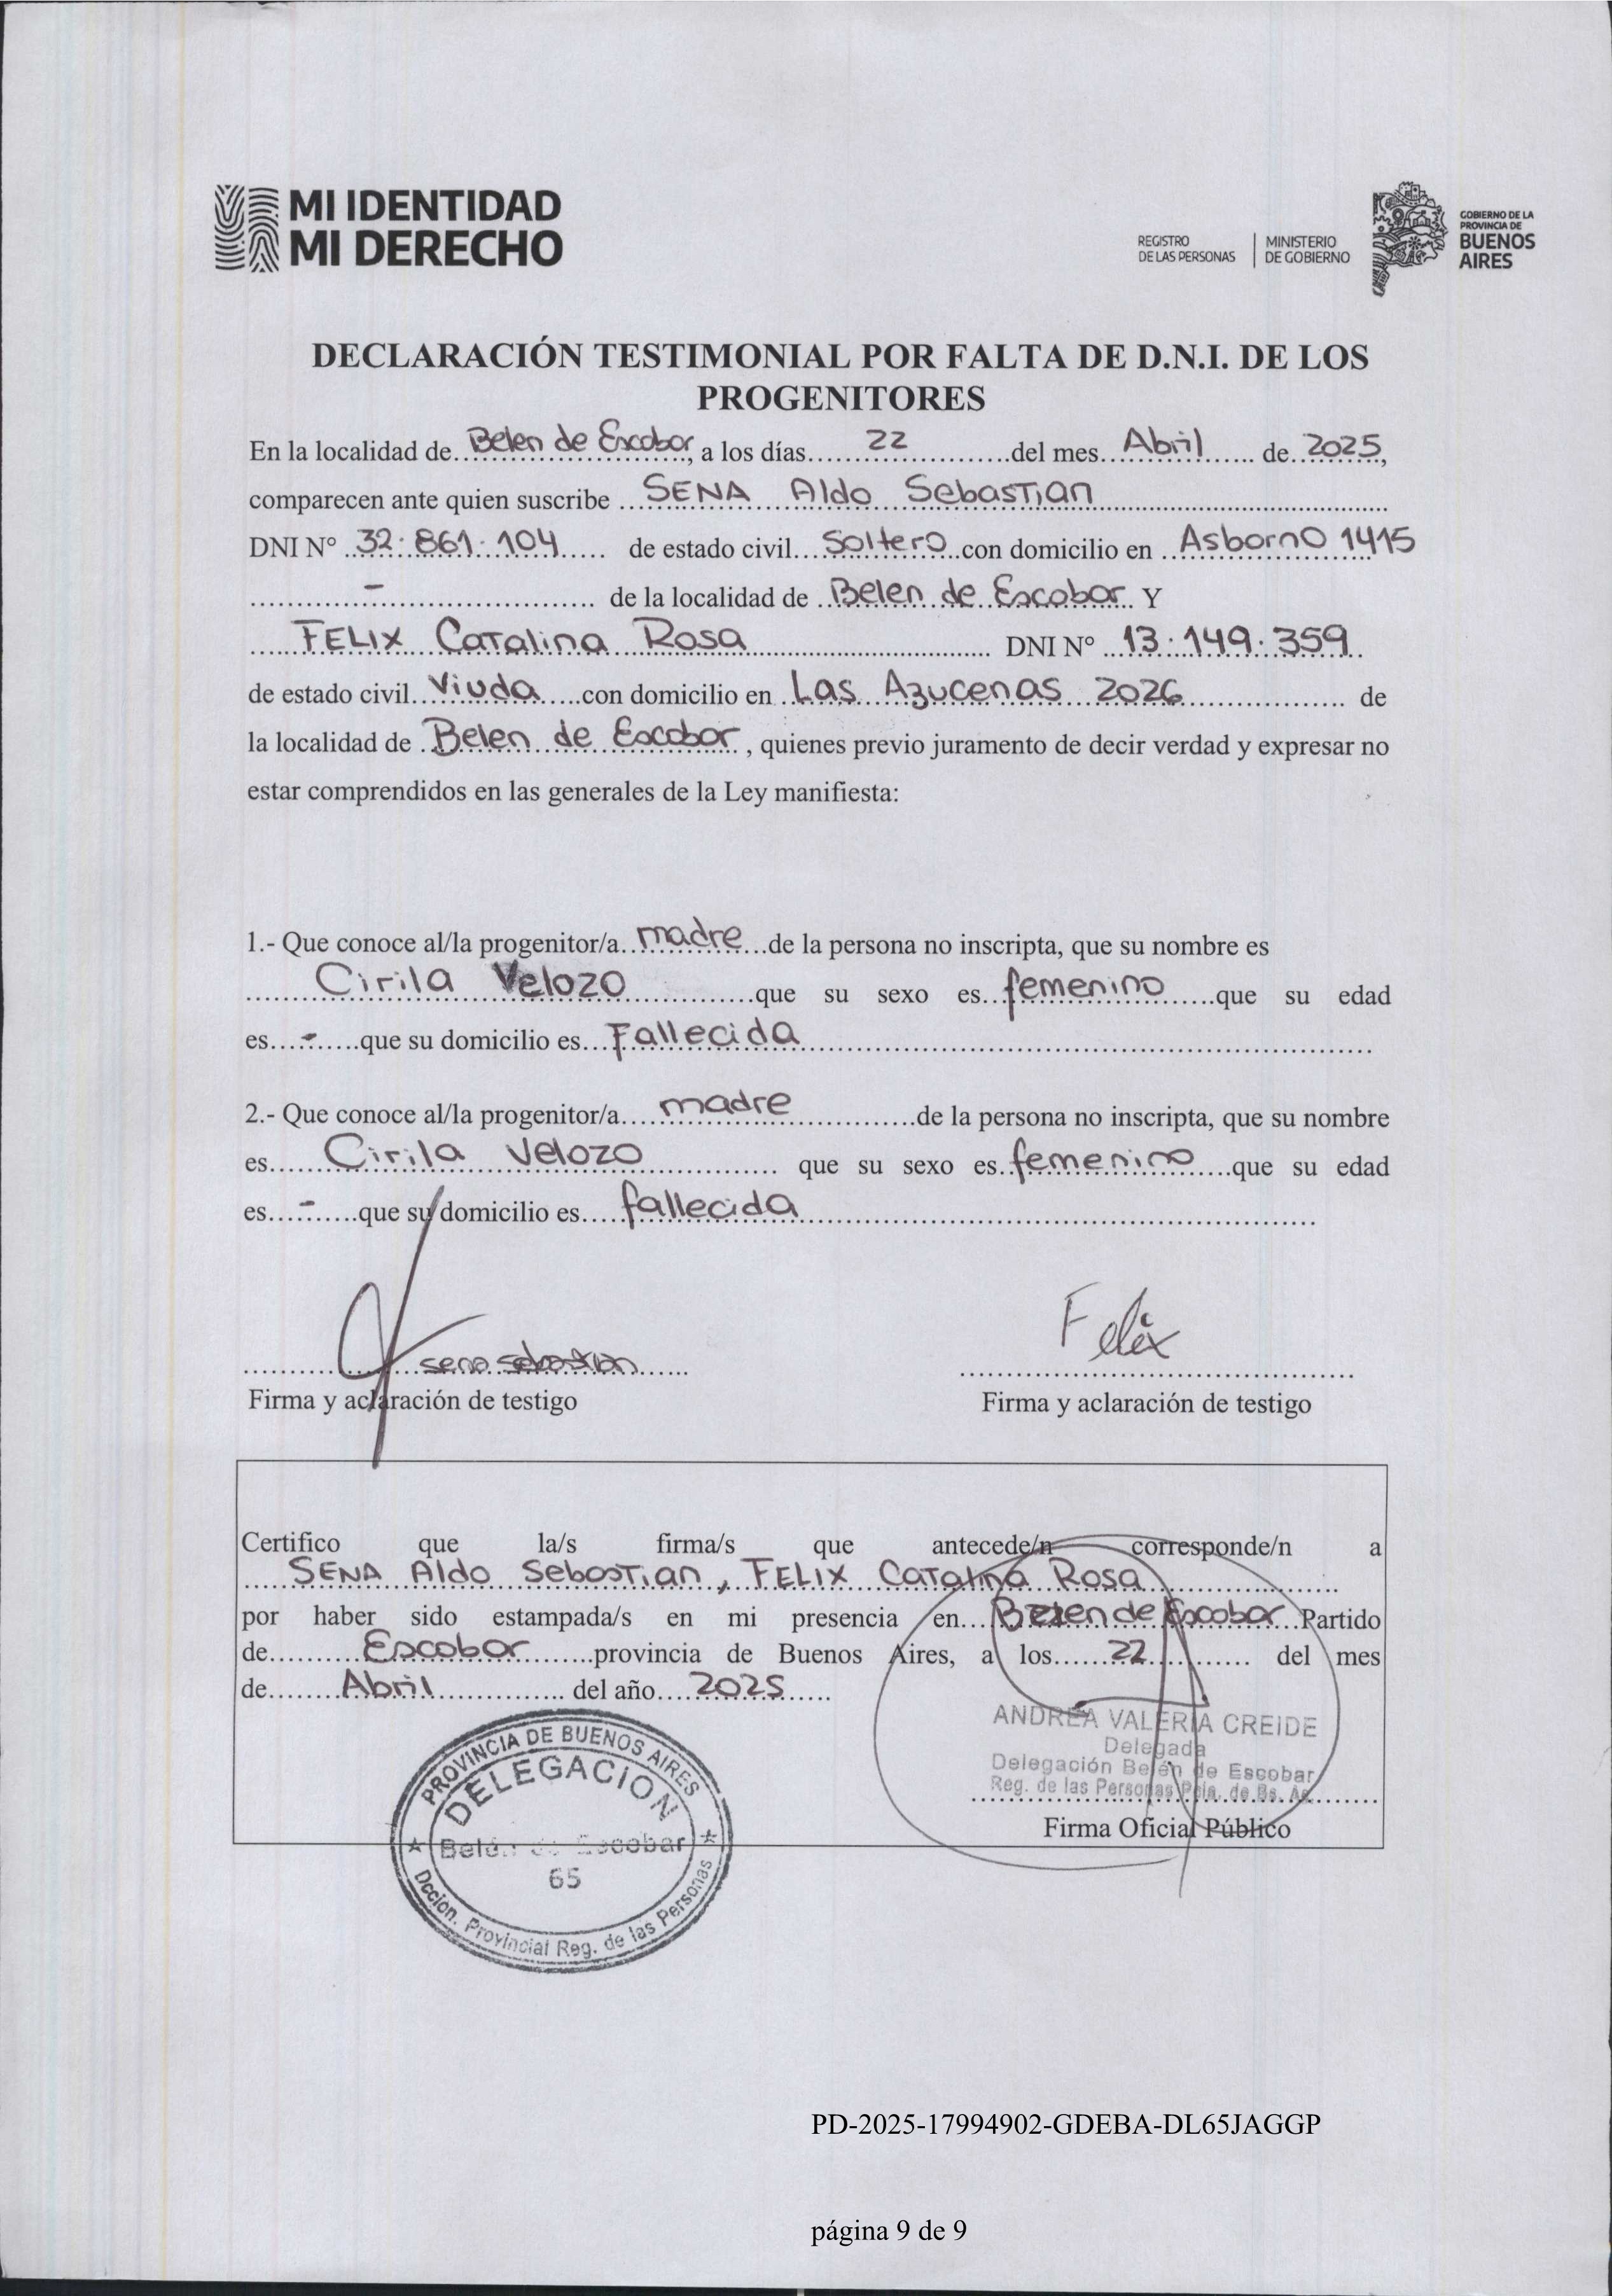 MI IDENTIDAD
MI DERECHO
REGISTRO
DE LAS PERSONAS
MINISTERIO
DE GOBIERNO
GOBIERNO DE LA
PROVINCIA DE
BUENOS
AIRES
DECLARACIÓN TESTIMONIAL POR FALTA DE D.N.I. DE LOS
PROGENITORES
En la localidad de Belen de Escobar, a los días 22 del mes Abril de 2025,
comparecen ante quien suscribe SENA Aldo Sebastian
DNI N° 32.861.104 de estado civil Soltero con domicilio en Asborno 1415
- de la localidad de Belen de Escobar Y
FELIX Catalina Rosa DNI N° 13.149.359
de estado civil Viuda con domicilio en Las Azucenas 2026 de
la localidad de Belen de Escobar, quienes previo juramento de decir verdad y expresar no
estar comprendidos en las generales de la Ley manifiesta:
1.- Que conoce al/la progenitor/a madre de la persona no inscripta, que su nombre es
Cirila Velozo que su sexo es femenino que su edad
es - que su domicilio es Fallecida
2.- Que conoce al/la progenitor/a madre de la persona no inscripta, que su nombre
es Cirila Velozo que su sexo es femenino que su edad
es - que su domicilio es fallecida
sena sebastian
Felix
Firma y aclaración de testigo
Firma y aclaración de testigo
Certifico que la/s firma/s que antecede/n corresponde/n a
SENA Aldo Sebastian, FELIX Catalina Rosa
por haber sido estampada/s en mi presencia en Belen de Escobar Partido
de Escobar provincia de Buenos Aires, a los 22 del mes
de Abril del año 2025
ANDREA VALERIA CREIDE
Delegada
Delegación Belén de Escobar
Reg. de las Personas Pcia. de Bs. As.
Firma Oficial Público
PROVINCIA DE BUENOS AIRES
DELEGACION
Belén de Escobar
65
Dccion. Provincial Reg. de las Personas
PD-2025-17994902-GDEBA-DL65JAGGP
página 9 de 9